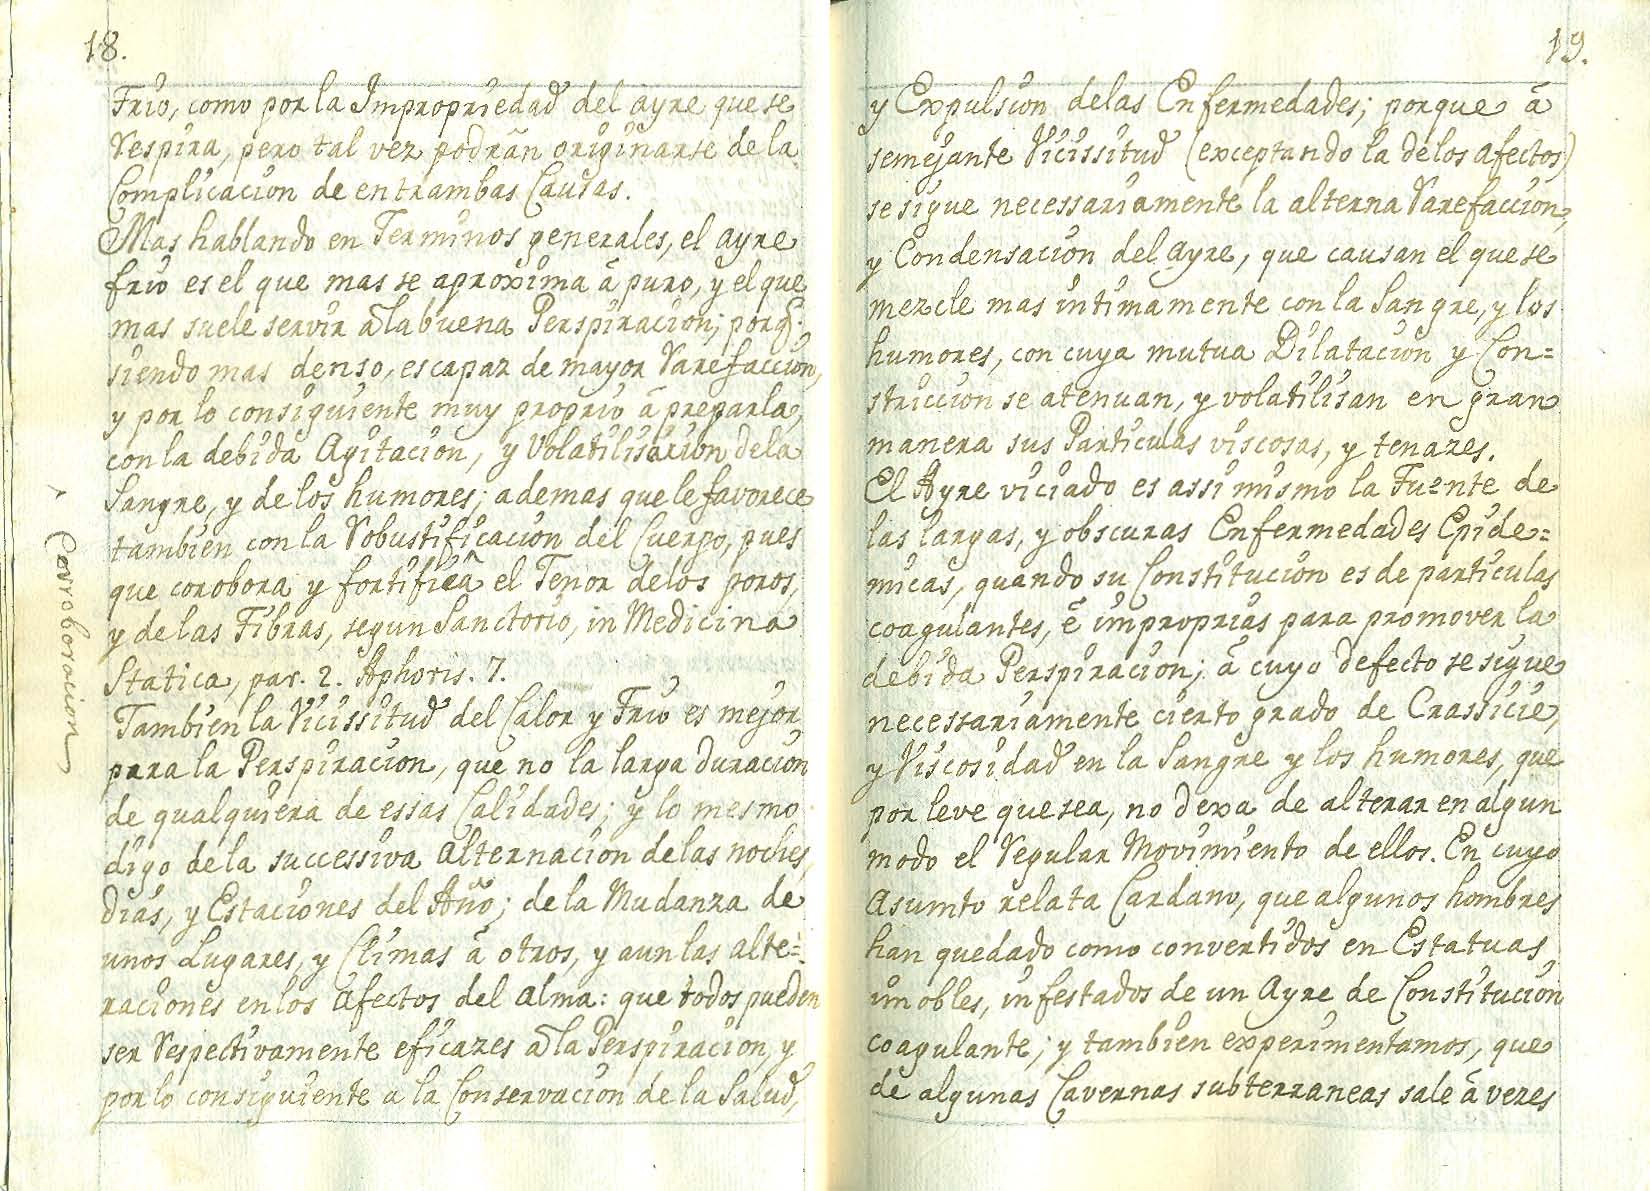 18.
Frio, como por la Impropriedad del ayre que se
Respira, pero tal vez podràn originarse de la
Complicacion de entrambas Causas.
Mas hablando en Terminos generales, el ayre
frio es el que mas se aproxima à puro, y el que
mas suele servir à la buena Perspiracion; porq.
siendo mas denso, es capaz de mayor Rarefaccion,
y por lo consiguiente muy proprio à prepararla,
con la debida Agitacion, y Volatilisacion de la
Sangre, y de los humores; ademas que le favorece
tambien con la Robustificacion del Cuerpo, pues
que corobora y fortifica el Tenor de los poros,
y de las Fibras, segun Sanctorio, in Medicina
Statica, par. 2. Aphoris. 7.
Tambien la Vicissitud del Calor y Frio es mejor
para la Perspiracion, que no la larga duracion
de qualquiera de essas Calidades; y lo mesmo
digo de la successiva alternacion de las noches,
dias, y Estaciones del Año; de la Mudanza de
unos Lugares, y Climas à otros, y aun las alte=
raciones en los afectos del alma: que todos pueden
ser Respectivamente eficazes à la Perspiracion, y
por lo consiguiente a la Conservacion de la Salud,
^ Corroboracion
19.
y Expulsion de las Enfermedades; porque à
semejante Vicissitud (exceptando la de los afectos)
se sigue necessariamente la alterna Rarefaccion,
y Condensacion del ayre, que causan el que se
mezcle mas intimamente con la Sangre, y los
humores, con cuya mutua Dilatacion y Con=
striccion se atenuan, y volatilisan en gran
manera sus Particulas viscosas, y tenazes.
El Ayre viciado es assi mismo la Fuente de
las largas, y obscuras Enfermedades Epide=
micas, quando su Constitucion es de particulas
coagulantes, è improprias para promover la
debida Perspiracion; à cuyo defecto se sigue
necessariamente cierto grado de Crassicie,
y Viscosidad en la Sangre y los humores, que
por leve que sea, no dexa de alterar en algun
modo el Regular Movimiento de ellos. En cuyo
Asumto relata Cardano, que algunos hombres
han quedado como convertidos en Estatuas
imobles, infestados de un Ayre de Constitucion
coagulante; y tambien experimentamos, que
de algunas Cavernas subterraneas sale à vezes